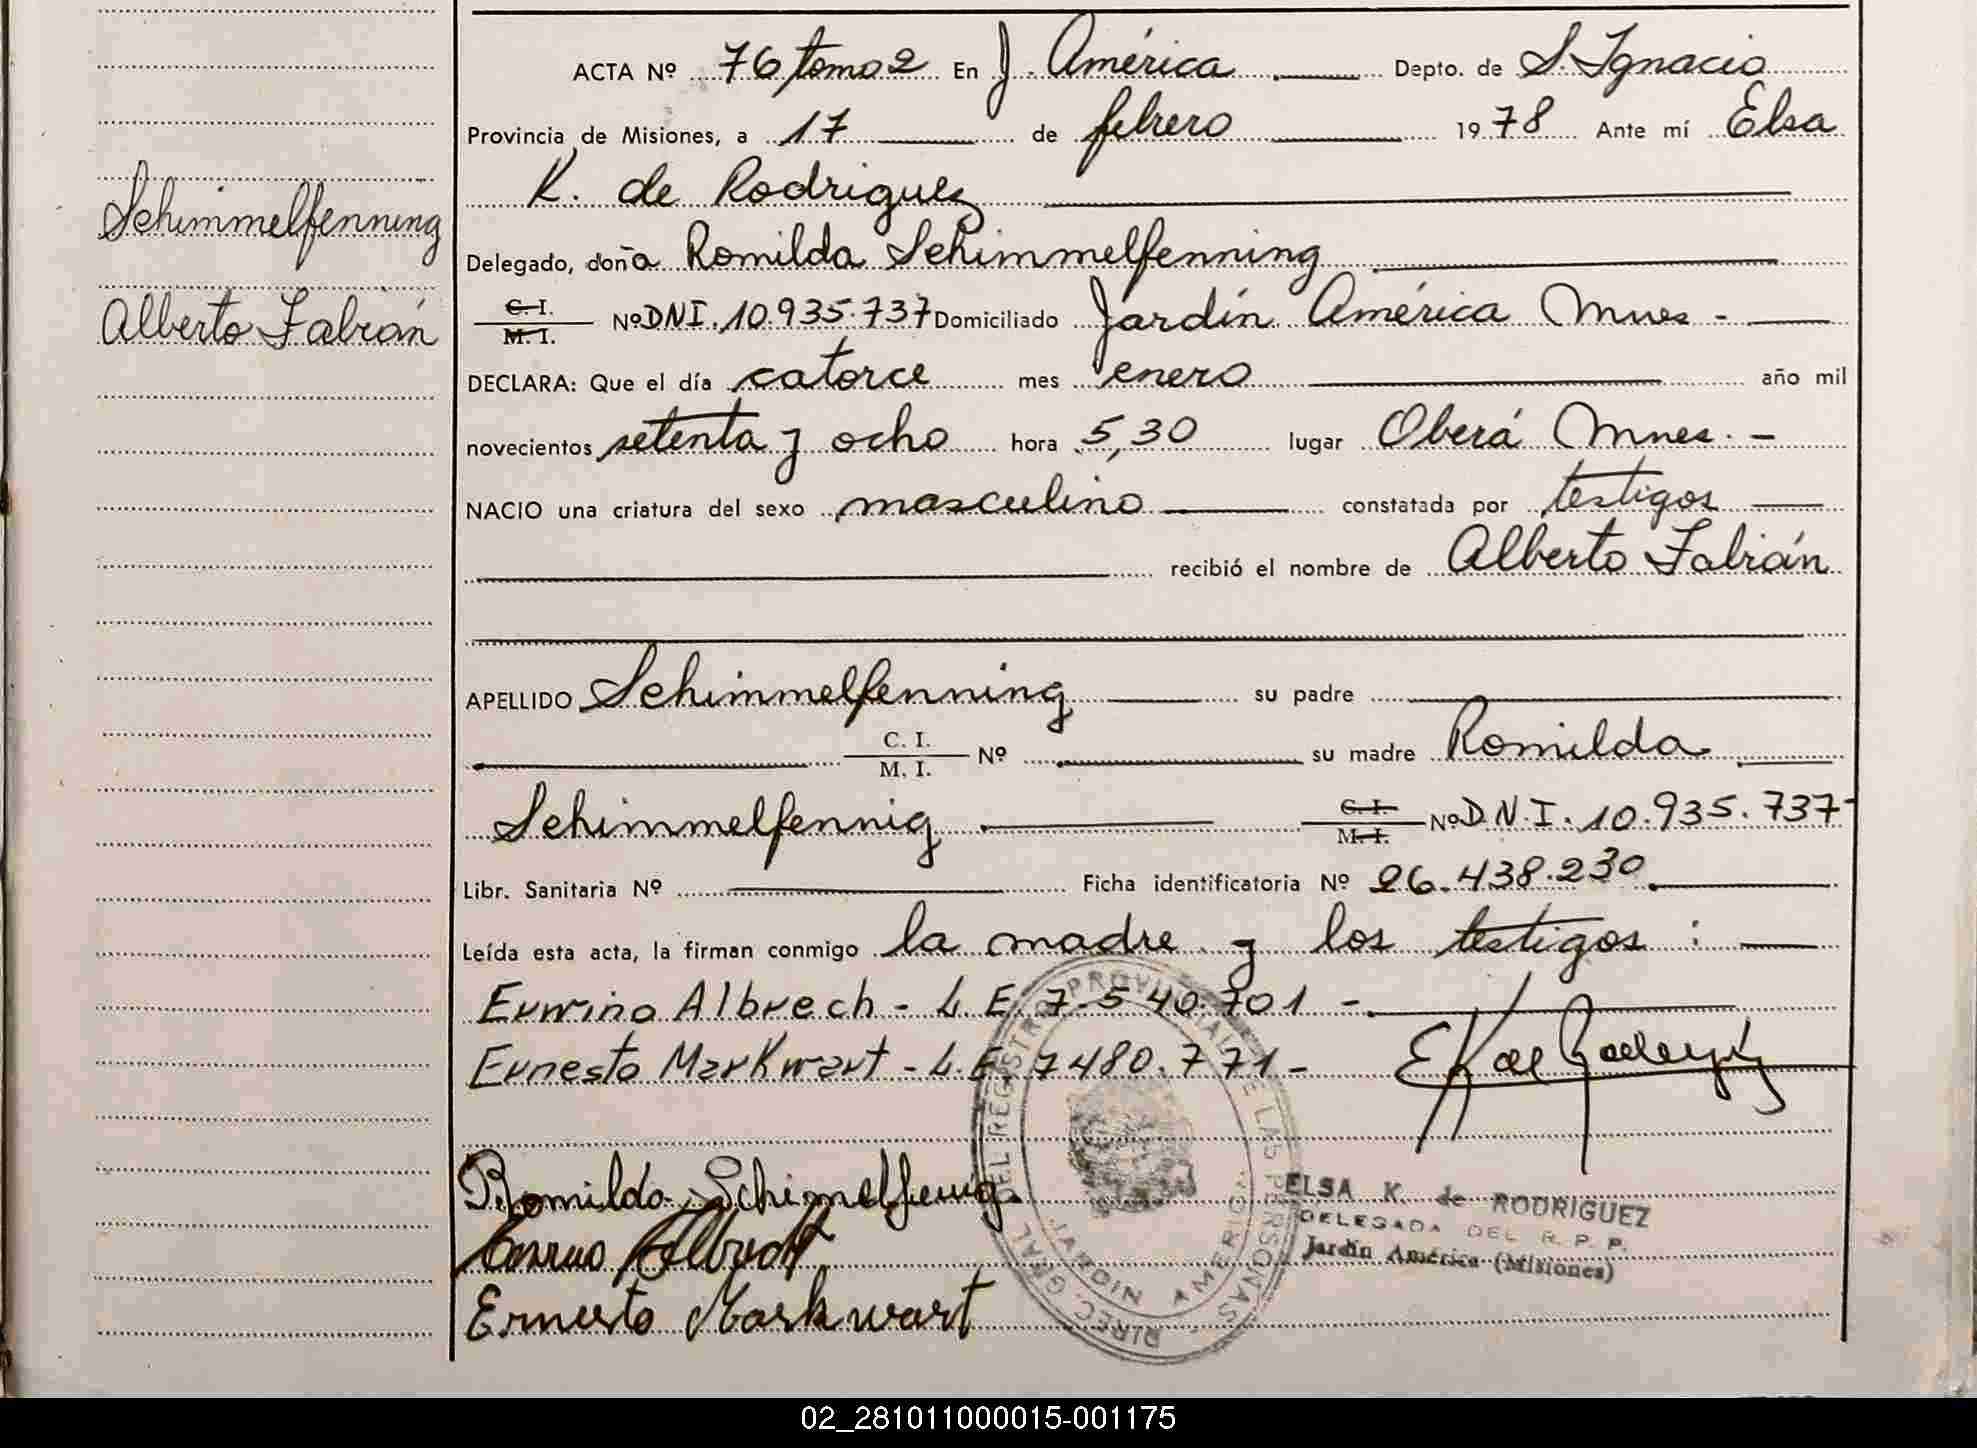 ACTA Nº 76 tomo 2 En J. América Depto. de S. Ignacio
Provincia de Misiones, a 17 de febrero 1978 Ante mí Elsa
K. de Rodriguez
Schimmelfenning
Delegado, doña Romilda Schimmelfenning
Alberto Fabián
C. I.
M. I. Nº DNI. 10.935.737 Domiciliado Jardín América Mnes -
DECLARA: Que el día catorce mes enero año mil
novecientos setenta y ocho hora 5,30 lugar Oberá Mnes. -
NACIO una criatura del sexo masculino constatada por testigos
recibió el nombre de Alberto Fabián
APELLIDO Schimmelfenning su padre
C. I.
M. I. Nº su madre Romilda
Schimmelfennig C. I.
M. I. Nº D.N.I. 10.935.737-
Libr. Sanitaria Nº Ficha identificatoria Nº 26.438.230
Leída esta acta, la firman conmigo la madre y los testigos :
Erwino Albrech - L.E. 7.540.701 -
Ernesto Markwart - L.E. 7480.771 -
E K de Rodriguez
Romilda Schimelfenig.
Albrecht
Ernesto Markwart
DIREC. GRAL. DEL REGISTRO PROVINCIAL DE LAS PERSONAS
JARDIN AMERICA
ELSA K. de RODRIGUEZ
DELEGADA DEL R. P. P.
Jardín América (Misiones)
02_281011000015-001175